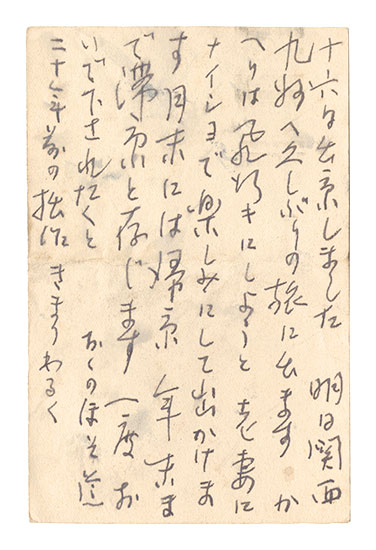 十六日出京しました 明日関西
九州へ久しぶりの旅に出ます か
へりは飛行キにしようと老妻に
ナイショで楽しみにして出かけま
す 月末には帰京 年末ま
で滞京と存じます 一度お
いで下されたくと おくのほそ道
二十年前の拙作 きまりわるく